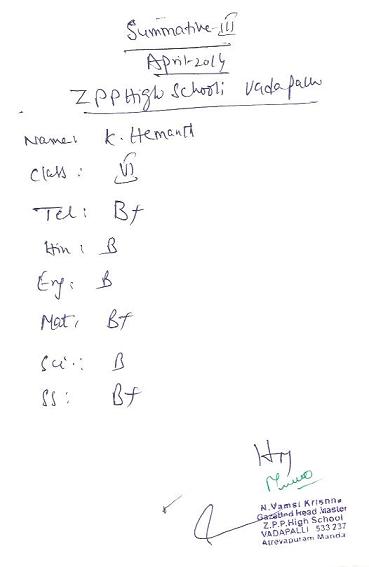 Summative-III
April-2014
Z P P High School: Vadapalli
Name: K. Hemanth
Class: VI
Tel: B+
Hin: B
Eng: B
Mat: B+
Sci: B
SS: B+
N.Vamsi Krishna
Gazetted Head Master
Z.P.P.High School
VADAPALLI 533 237
Atreyapuram Mandal